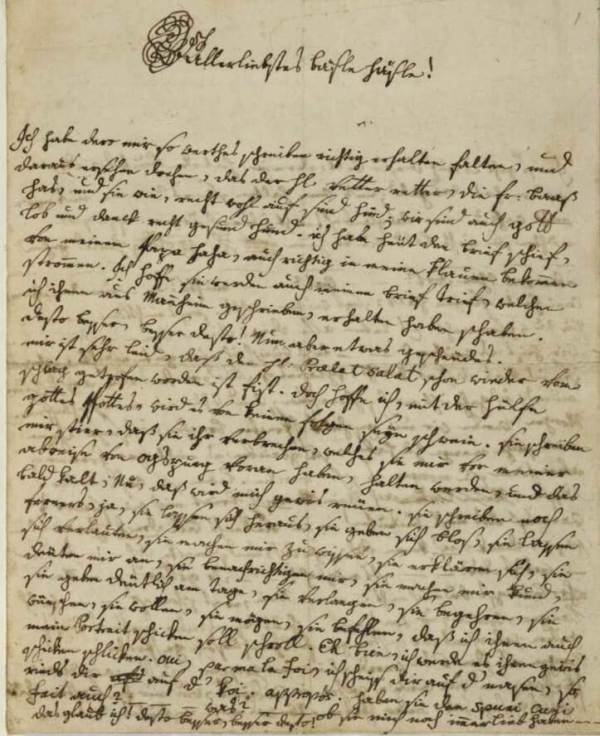 Allerliebstes bäsle häsle!
Ich habe dero mir so werthes schreiben richtig erhalten falten, und
daraus ersehen drehen, daß der H: vetter retter, die fr: baaß
has, und sie wie, recht wohl auf sind hind; wir sind auch gott
lob und danck recht gesund hund. ich habe heüt den brief schief,
von meinem Papa haha, auch richtig in meine klauen bekommen
strommen. Ich hoffe sie werden auch meinen brief trief, welchen
ich ihnen aus Mannheim geschrieben, erhalten haben schaben.
desto besser, besser desto! Nun aber etwas gescheüdes.
mir ist sehr leid, daß der H: Prælat Salat schon wieder vom
schlag getrofen worden ist fist. doch hoffe ich, mit der hülfe
gottes spottes, wird es von keinen folgen seyn schwein. sie schreiben
mir stier, daß sie ihr verbrechen, welches sie mir vor meiner
abreise von ogspurg voran haben, halten werden, und das
bald kalt; Nu, daß wird mich gewis reüen. sie schreiben noch
ferners, ja, sie lassen sich heraus, sie geben sich blos, sie lassen
sich verlauten, sie machen mir zu wissen, sie erklären sich, sie
deüten mir an, sie benachrichtigen mir, sie machen mir kund,
sie geben deütlich am tage, sie verlangen, sie begehren, sie
wünschen, sie wollen, sie mögen, sie befehlen, daß ich ihnen auch
mein Portrait schicken soll schroll. Eh bien, ich werde es ihnen gewis
schicken schlicken. Oui, par ma la foi, ich scheiss dir auf d'nasen, so
rinds dir auf d'koi. appropós. haben sie den spuni cuni
fait auch? — was?
das glaub ich! desto besser, besser desto! ob sie mich noch immer lieb haben —